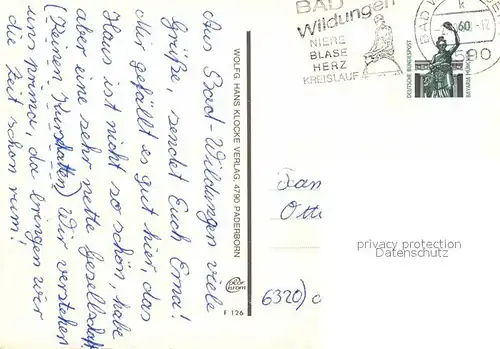 Aus Bad-Wildungen viele
Grüße, sendet Euch Erna!
Mir gefällt es gut hier, das
Haus ist nicht so schön, habe
aber eine sehr nette Gesellschaft
(Keinen Kurschatten) Wir verstehen
uns prima, da bringen wir
die Zeit schon rum!
WOLFG. HANS KLOCKE VERLAG, 4790 PADERBORN
color
chrom
F 126
BAD
Wildungen
NIERE
BLASE
HERZ
KREISLAUF
BAD
k
-12
590
60
DEUTSCHE BUNDESPOST
BAVARIA MÜNCHEN
Fam
Otto
6320)
privacy protection
Datenschutz